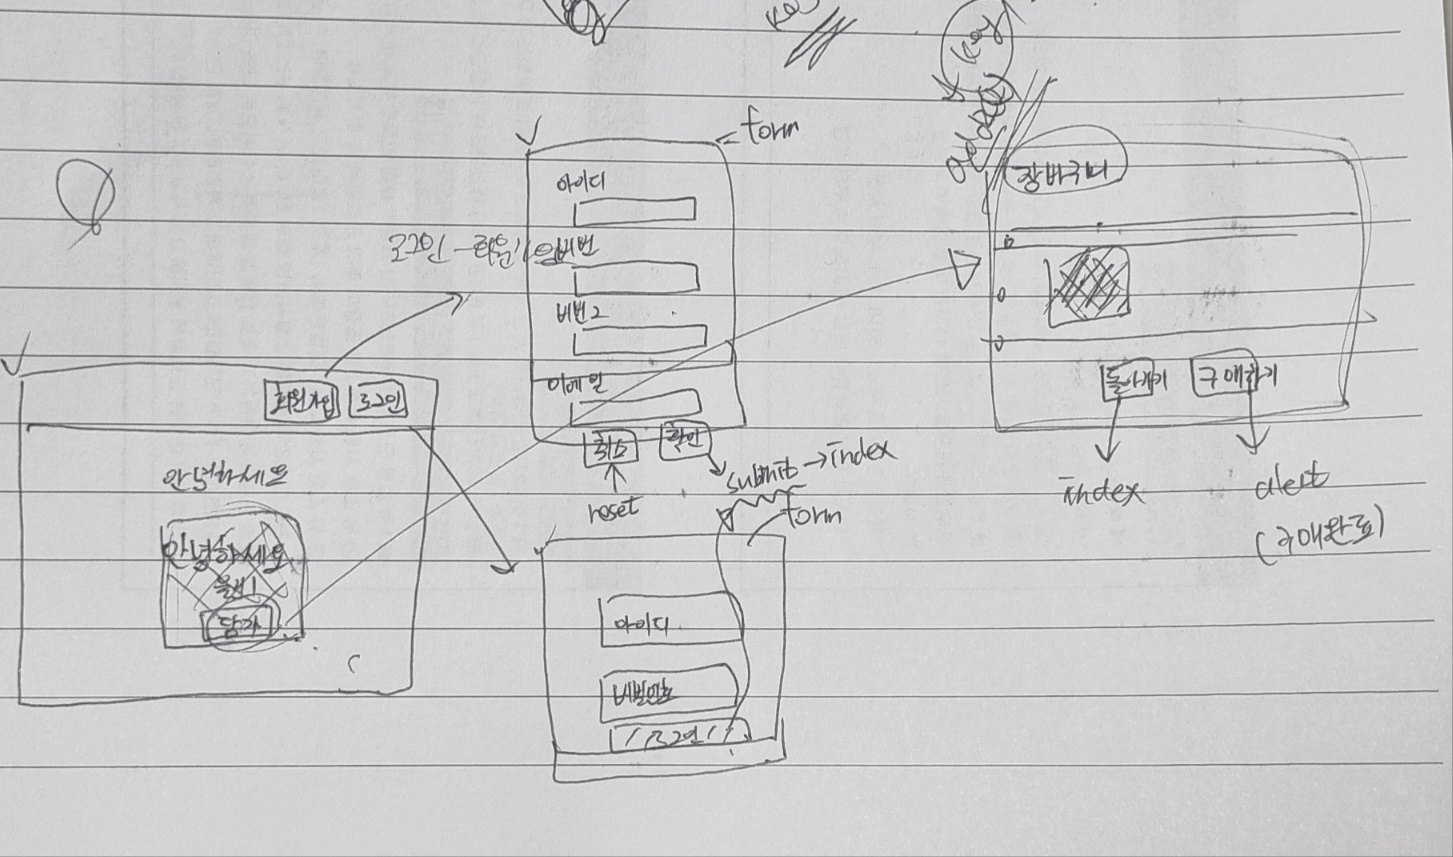 key
key
address
form
아이디
비번
비번2
이메일
취소
확인
reset
submit → index
장바구니
돌아가기
구매하기
index
alert
(구매완료)
회원가입
로그인
안녕하세요
안녕하세요
담기
form
아이디
비밀번호
로그인